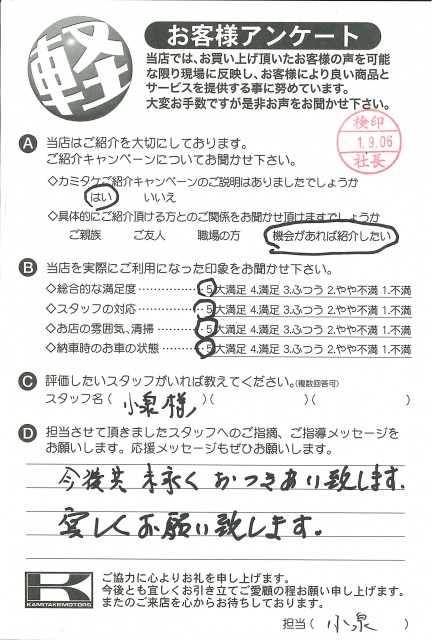 軽
お客様アンケート
当店では、お買い上げ頂いたお客様の声を可能
な限り現場に反映し、お客様により良い商品と
サービスを提供する事に努めています。
大変お手数ですが是非お声をお聞かせ下さい。
検印
1.9.06
社長
A 当店はご紹介を大切にしてあります。
ご紹介キャンペーンについてお聞かせ下さい。
◇カミタケご紹介キャンペーンのご説明はありましたでしょうか
はい いいえ
◇具体的にご紹介頂ける方とのご関係をお聞かせ頂けますでしょうか
ご親族 ご友人 職場の方 機会があれば紹介したい
B 当店を実際にご利用になった印象をお聞かせ下さい。
◇総合的な満足度 5大満足 4.満足 3.ふつう 2.やや不満 1.不満
◇スタッフの対応 5大満足 4.満足 3.ふつう 2.やや不満 1.不満
◇お店の雰囲気、清掃 5大満足 4.満足 3.ふつう 2.やや不満 1.不満
◇納車時のお車の状態 5大満足 4.満足 3.ふつう 2.やや不満 1.不満
C 評価したいスタッフがいれば教えてください。(複数回答可)
スタッフ名 ( 小泉様 )( )( )
D 担当させて頂きましたスタッフへのご指摘、ご指導メッセージを
お願いします。応援メッセージもぜひお願いします。
今後共 末永く おつきあい致します.
宜しくお願い致します。
K
KAMITAKE MOTORS
ご協力に心よりお礼を申し上げます。
今後とも宜しくお引き立てご愛顧の程お願い申し上げます。
またのご来店を心からお待ちしております。
担当 ( 小泉 )